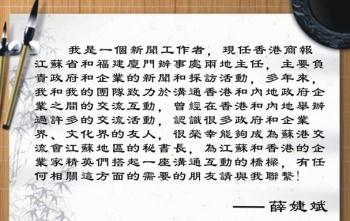 我是一個新聞工作者，現任香港商報
江蘇省和福建廈門辦事處兩地主任，主要負
責政府和企業的新聞和採訪活動，多年來，
我和我的團隊致力於溝通香港和內地政府企
業之間的交流互動，曾經在香港和內地舉辦
過許多的交流活動，認識很多政府和企業
界、文化界的友人，很榮幸能夠成為蘇港交
流會江蘇地區的秘書長，為江蘇和香港的企
業家精英們搭起一座溝通互動的橋樑，有任
何相關這方面的需要的朋友請與我聯繫！
——薛婕斌